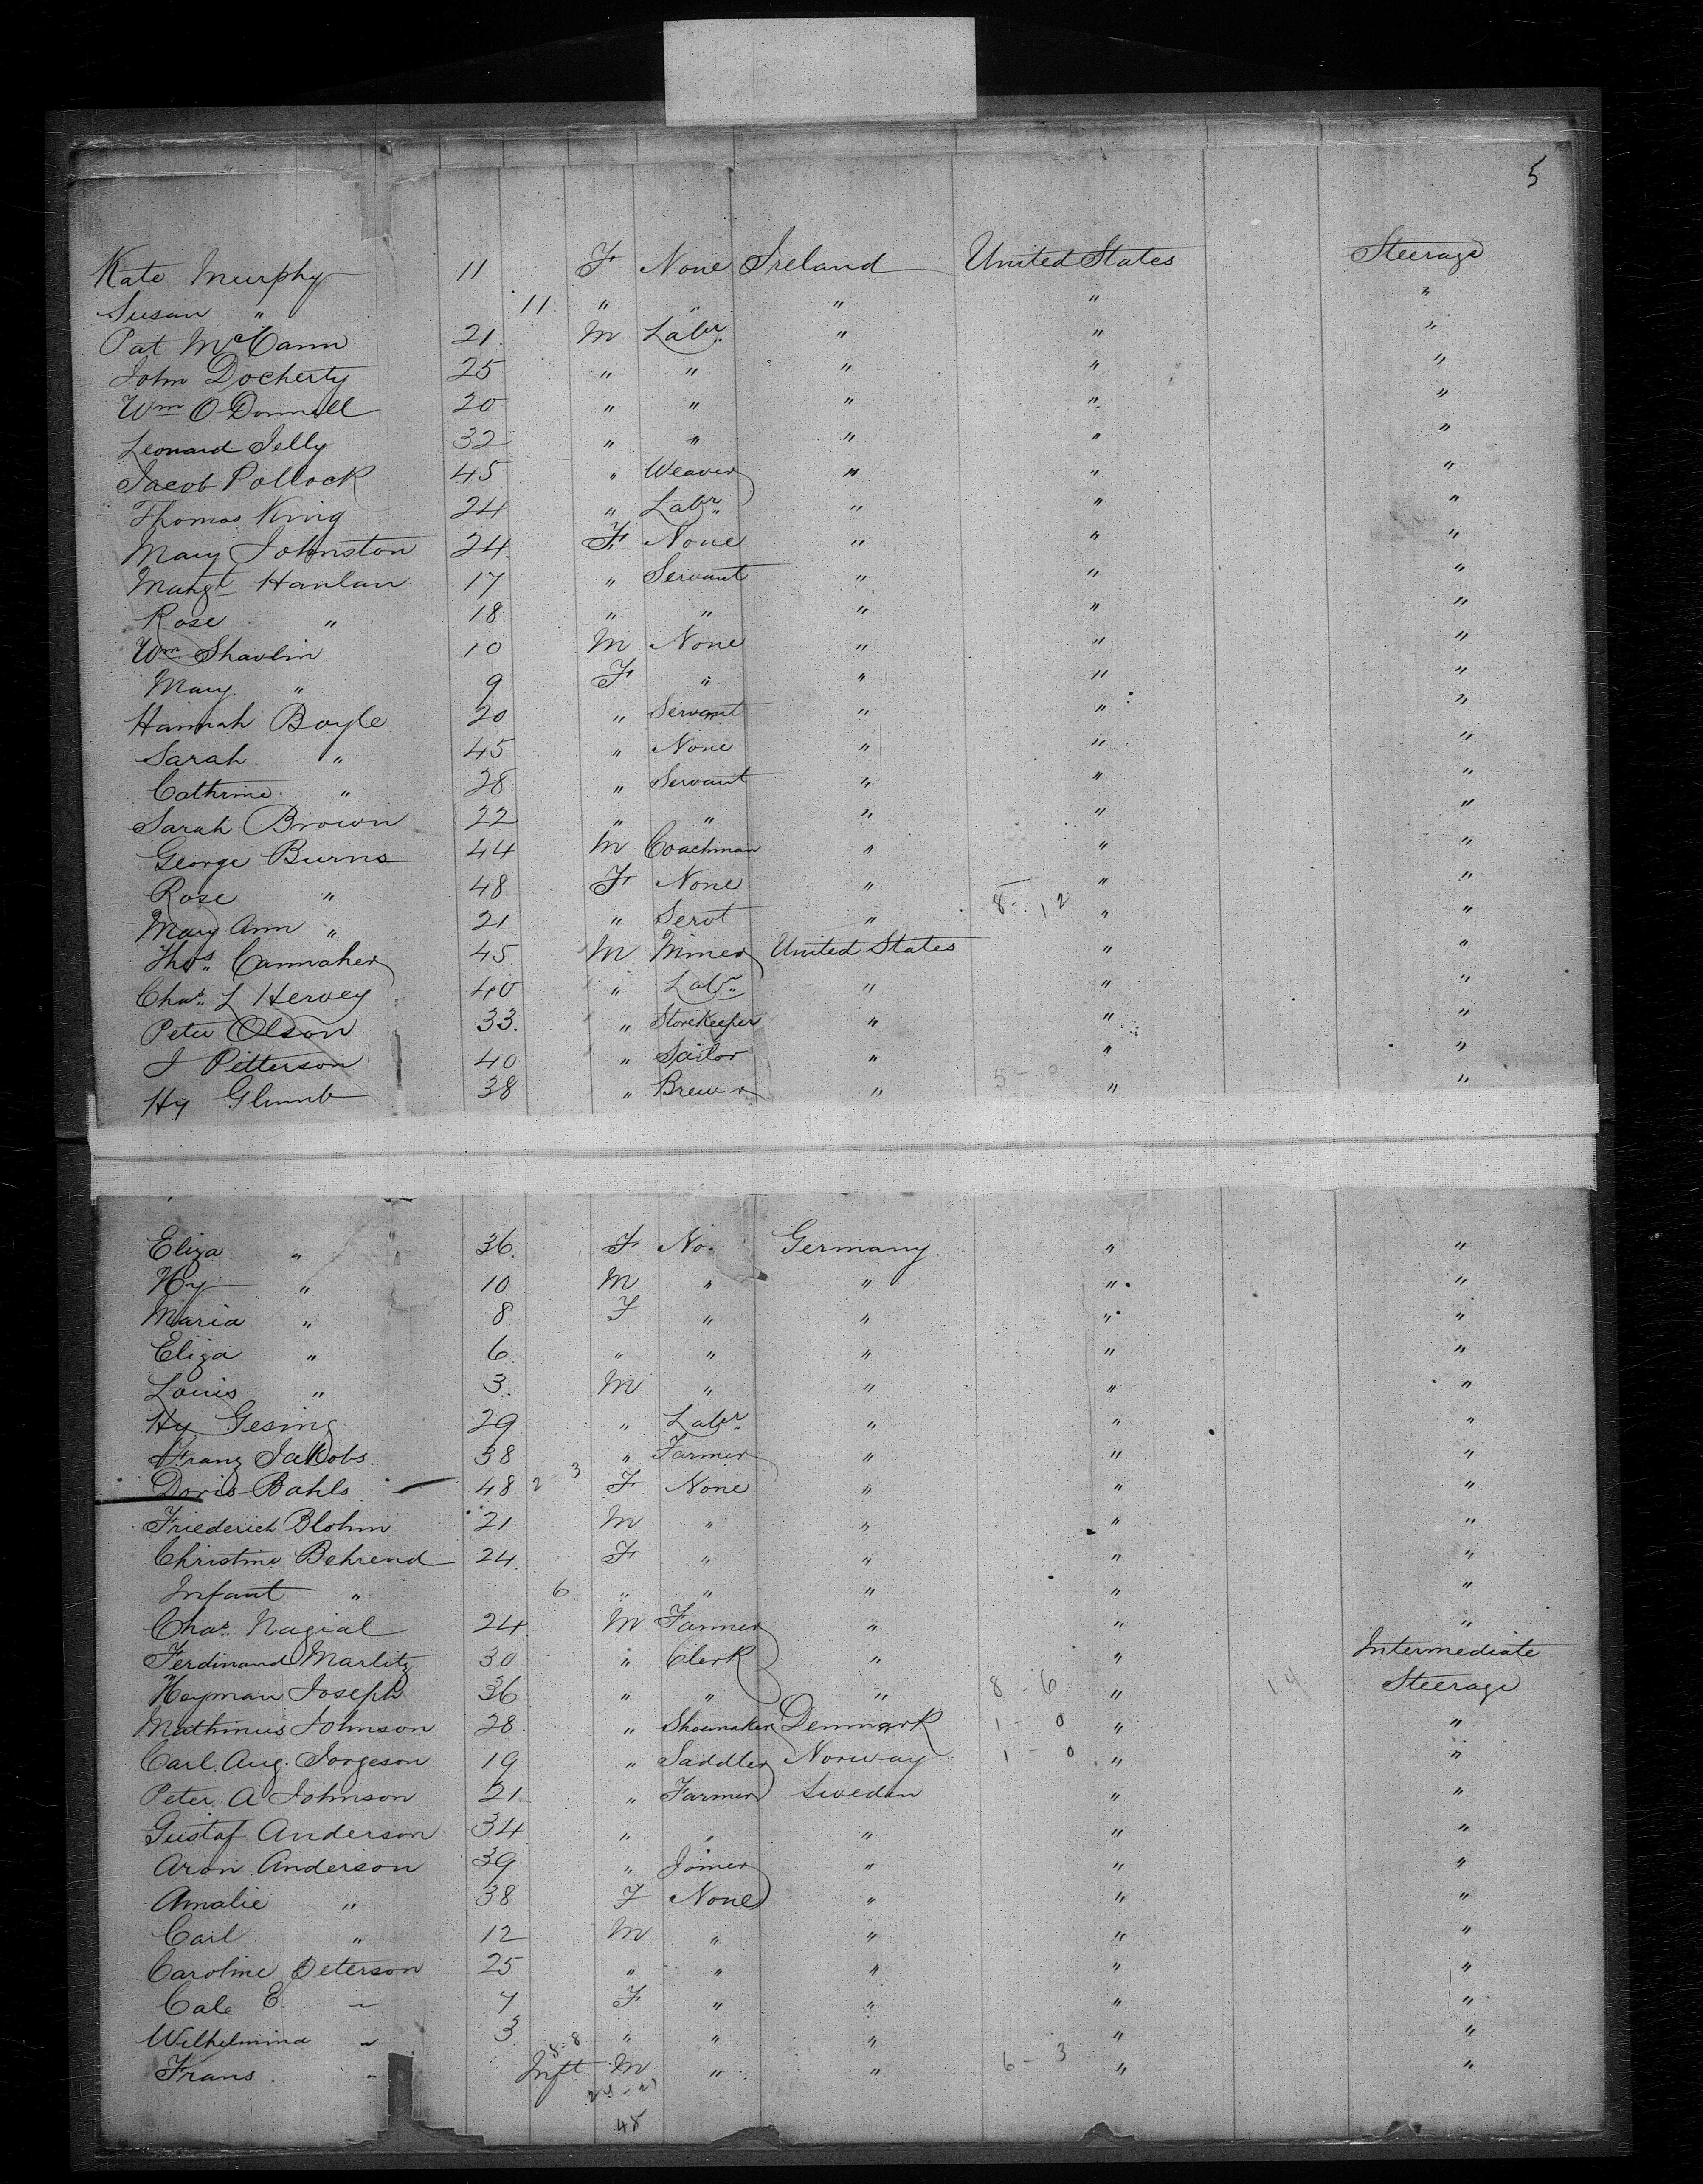 5
Kate Murphy 11 F None Ireland United States Steerage
Susan " 11. " " " " "
Pat McCann 21. M Labr. " " "
John Docherty 25 " " " " "
Wm O Donnell 20 " " " " "
Leonard Jelly 32 " " " " "
Jacob Pollock 45 " Weaver " " "
Thomas King 24 " Labr. " " "
Mary Johnston 24. F None " " "
Margt Hanlan 17 " Servant " " "
Rose " 18 " " " " "
Wm Shavlin 10 M None " " "
Mary " 9 F " " " "
Hannah Boyle 20 " Servant " " "
Sarah " 45 " None " " "
Cathrine " 28 " Servant " " "
Sarah Brown 22 " " " " "
George Burns 44 M Coachman " " "
Rose " 48 F None " " "
Mary Ann " 21 " Servt " 8-12 " "
Thos. Cannaher 45. M Miner United States " "
Chas. L Hervey 40 " Labr. " " "
Peter Olson 33. " Storekeeper " " "
J Petterson 40 " Sailor " " "
Hy Glumb 38 " Brewer " 5-0 " "
Eliza " 36. F. No. Germany. " "
Hy " 10 M " " " "
Maria " 8 F " " " "
Eliza " 6. " " " " "
Louis " 3. M " " " "
Hy Gesing 29. " Labr. " " "
Franz Jakobs. 38 " Farmer " " "
Doris Bahls. 48 2 3 F None " " "
Friederich Blohm 21 M " " " "
Christine Behrend 24 F " " " "
Infant " 6. " " " " "
Chas. Nagial 24. M Farmer " " "
Ferdinand Marlitz 30 " Clerk " " Intermediate
Heyman Joseph 36 " " " 8-6 " 14 Steerage
Mathinus Johnson 28. " Shoemaker Denmark 1-0 " "
Carl. Aug. Jorgeson 19 " Saddler Norway 1-0 " "
Peter A Johnson 21. " Farmer Sweden " "
Gustaf Anderson 34 " " " " "
Aron Anderson 39 " Joiner " " "
Amalie " 38 F None " " "
Carl " 12 M " " " "
Caroline Peterson 25 " " " " "
Cale E. " 7 F " " " "
Wilhelmina " 3 " " " " "
Frans. " Inft. M " " 6-3 " "
48